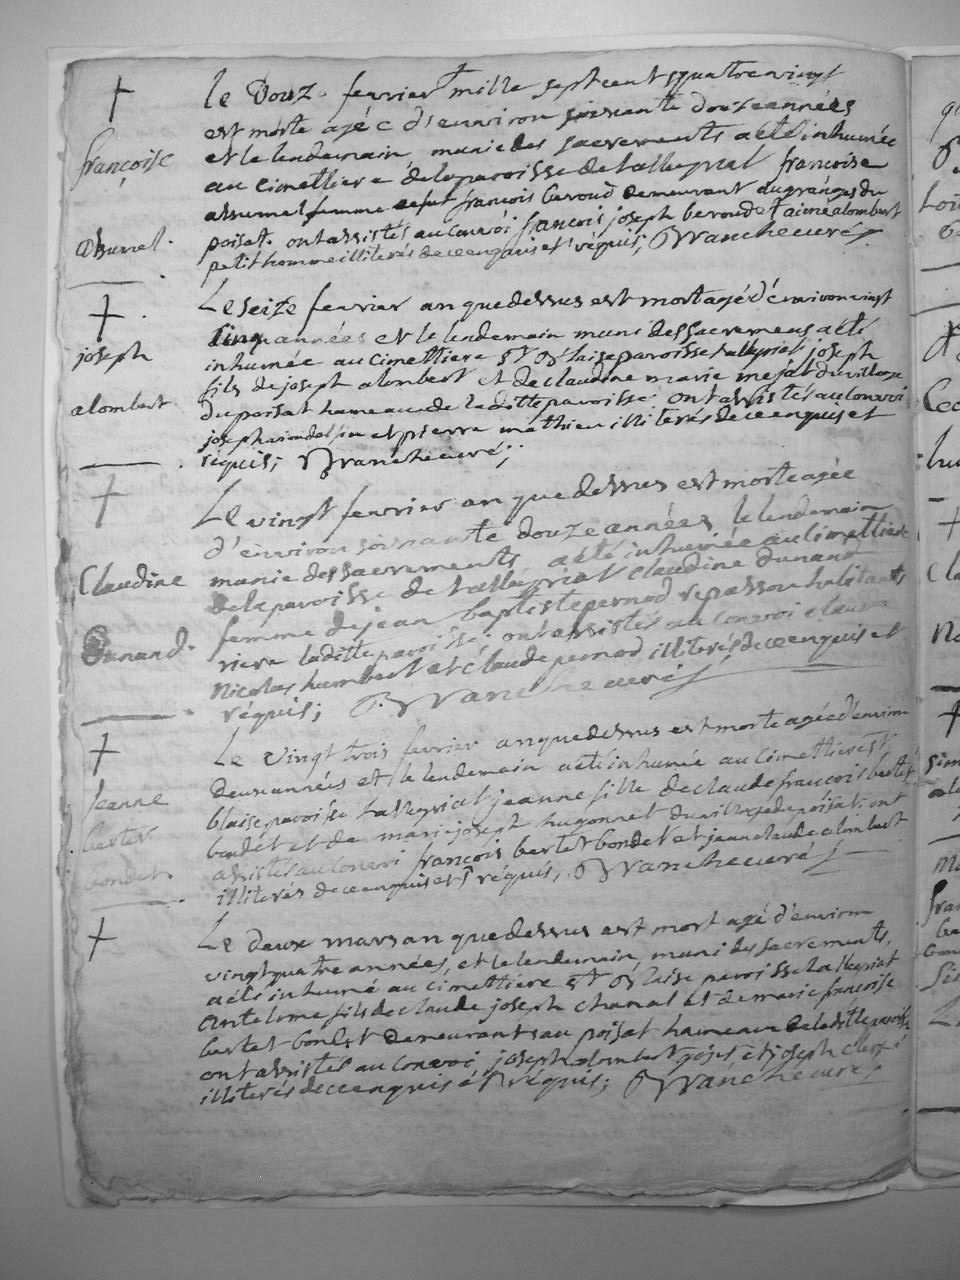 Le Douz. fevrier mille septcent quatrevingt
est morte agéc d'environ soissante douze années
et le lendemain, munie des sacrements a été inhumée
françoise
au cimettiere de la paroisse de talleyriat françoise
femme de fut françois beroud demeurant au granges du
poisat. ont assistés au convoi françois joseph beroud et aimé alombert
petit homme illiterés de ce enquis et réquis;
Le seize fevrier an que dessus est mort agé d'environ vingt
cinq années et le lendemain muni des sacremens a été
joseph
inhumée au cimettiere St Blaise paroisse talleyriat joseph
fils de joseph alombert et de claudine marie mejat du village
alombert
Du poisat hameau de la ditte paroisse. ont assistés au convoi
joseph et pierre mathieu illiterés de ce enquis et
réquis;
Le vingt fevrier an que dessus est morte agée
d'environ soissante douze années, le lendemain
Claudine
munie des sacrements, a été inhumée au cimettiere
de la paroisse de talleyriat claudine dunand
Dunand.
femme de jean baptiste pernod repassou habitants
riere laditte paroisse; ont assistés au convoi claude
Nicolas humbert et claude pernod illiterés de ce enquis et
réquis;
Le vingt trois fevrier an que dessus est morte agée d'environ
Jeanne
deux années et le lendemain a été inhumé au cimettiere St
bertet
blaise paroisse talleyriat jeanne fille de claude françois bertet
bondet et de marie joseph hugonnet du village de poisat. ont
bondet.
assistés au convoi françois bertet bondet et jean claude alombert
illiterés de ce enquis et réquis;
Le deux mars an que dessus est mort agé d'environ
vingt quatre années, et le lendemain, muni des sacrements,
a été inhumé au cimettiere St Blaise paroisse talleyriat
Antelme fils de claude joseph chanal et de marie françoise
bertet bondet demeurants au poisat hameau de la ditte paroisse
ont assistés au convoi, joseph alombert et joseph
illiterés de ce enquis et réquis;